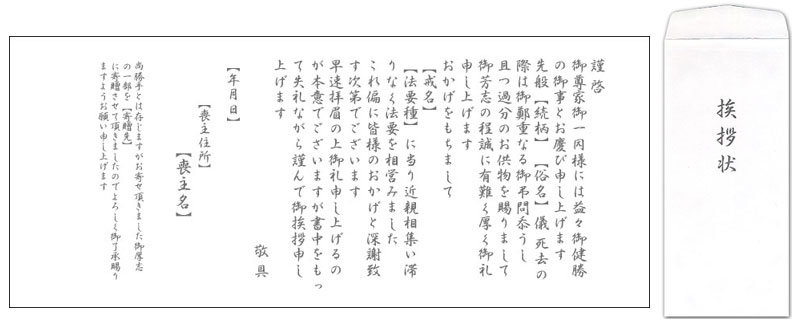 謹啓
御尊家御一同様には益々御健勝
の御事とお慶び申し上げます
先般【続柄】【俗名】儀 死去の
際は御鄭重なる御弔問忝うし
且つ過分のお供物を賜りまして
御芳志の程誠に有難く厚く御礼
申し上げます
おかげをもちまして
【戒名】
【法要種】に当り近親相集い滞
りなく法要を相営みました
これ偏に皆様のおかげと深謝致
す次第でございます
早速拝眉の上御礼申し上げるの
が本意でございますが書中をもっ
て失礼ながら謹んで御挨拶申し
上げます
敬具
【年月日】
【喪主住所】
【喪主名】
尚勝手とは存じますがお寄せ頂きました御厚志
の一部を【寄贈先】
に寄贈させて頂きましたのでよろしく御了承賜り
ますようお願い申し上げます
挨拶状